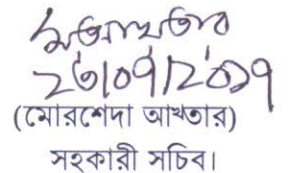 ২৩/০৭/২০১৭
(মোরশেদা আখতার)
সহকারী সচিব।